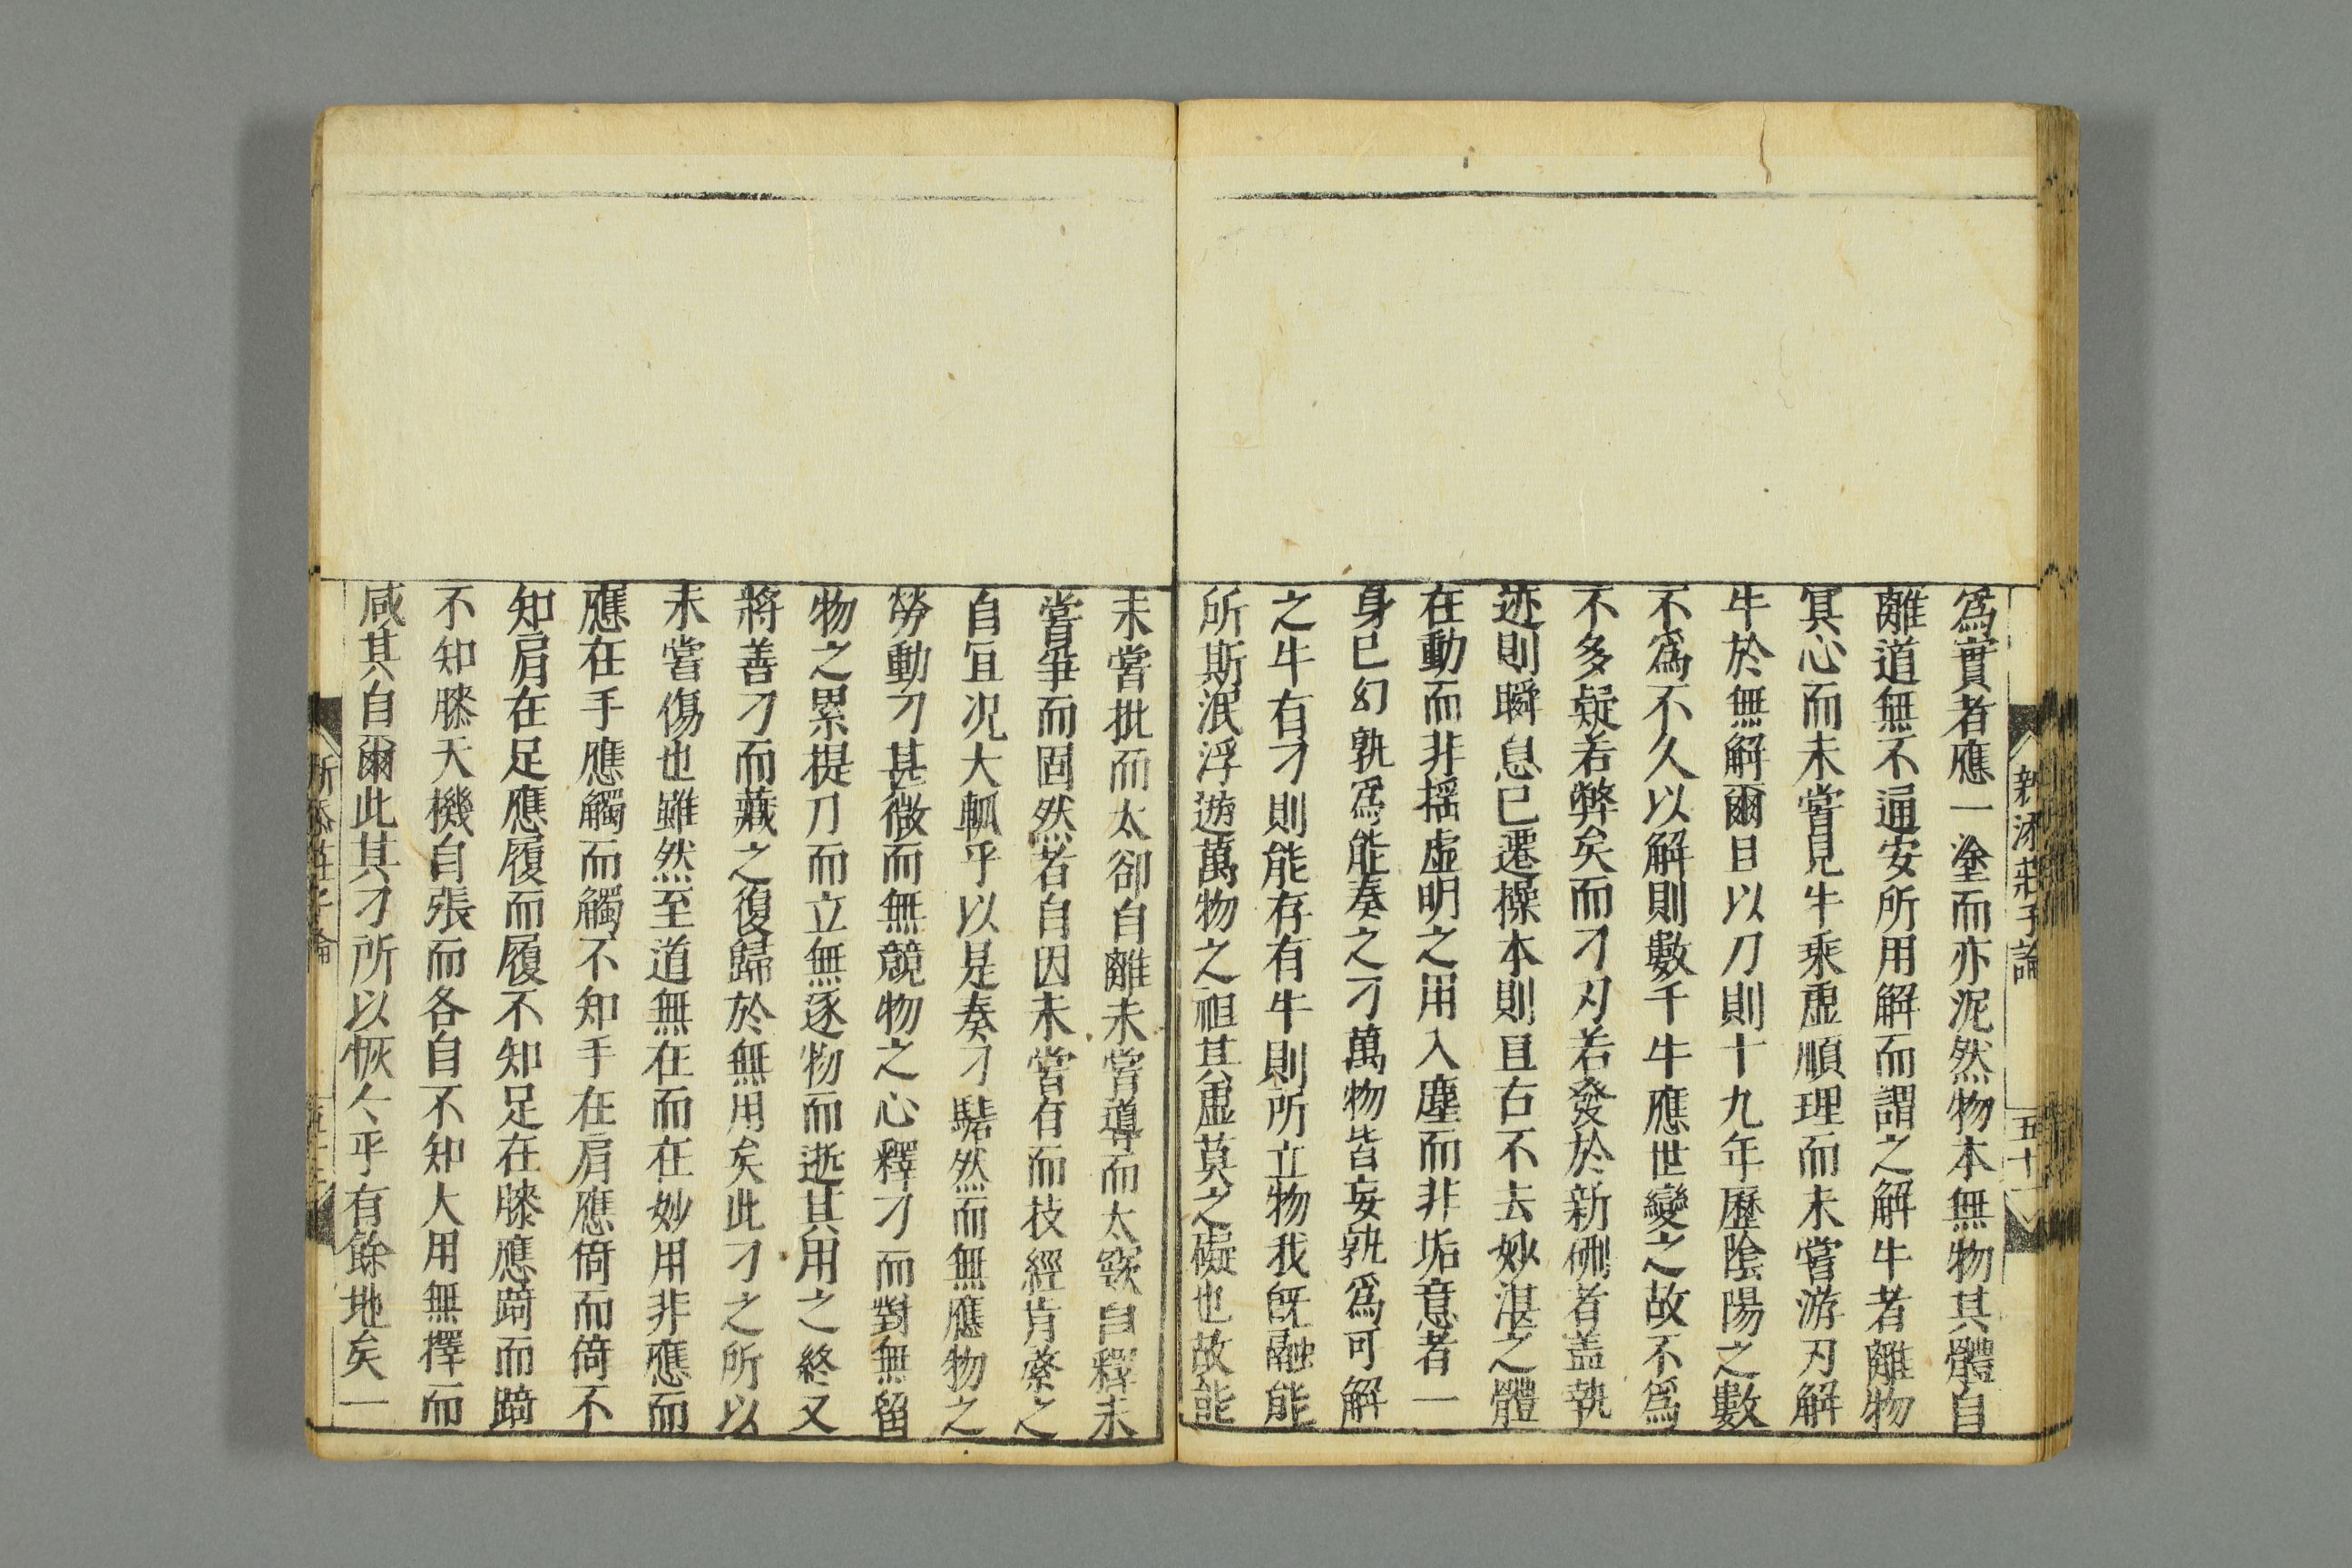 新添莊子論
五十一
爲實者應一塗而亦泥然物本無物其體自
離道無不通安所用解而謂之解牛者離物
冥心而未嘗見牛乘虛順理而未嘗游刃解
牛於無解爾且以刀則十九年歷陰陽之數
不爲不久以解則數千牛應世變之故不爲
不多疑若弊矣而刁刃若發於新硎者盖執
迹則瞬息已遷操本則亘古不去妙湛之體
在動而非揺虛明之用入塵而非垢意者一
身已幻孰爲能奏之刁萬物皆妄孰爲可解
之牛有刁則能存有牛則所立物我旣融能
所斯泯浮遊萬物之祖其虛莫之礙也故能
未嘗批而太卻自離未嘗導而太窾自釋未
嘗争而固然者自因未嘗有而技經肯綮之
自冝况大軱乎以是奏刁騞然而無應物之
勞動刁甚微而無競物之心釋刁而對無留
物之累提刀而立無逐物而逝其用之終又
將善刁而藏之復歸於無用矣此刁之所以
未嘗傷也雖然至道無在而在妙用非應而
應在手應觸而觸不知手在肩應倚而倚不
知肩在足應履而履不知足在膝應踦而踦
不知膝天機自張而各自不知大用無擇而
咸其自爾此其刁所以恢仒乎有餘地矣一
新添莊子論